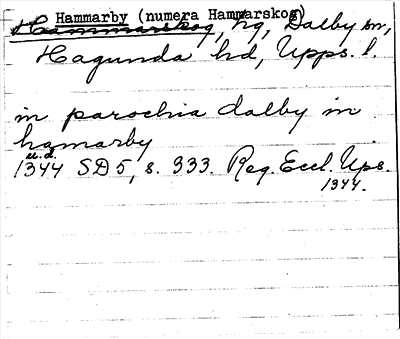 Hammarby (numera Hammarskog)
Hammarskog, hg, Dalby sn,
Hagunda hd, Upps. l.
in parochia dalby in
hamarby
u.d.
1344 SD 5, s. 333. Reg. Eccl. Ups.
1344.